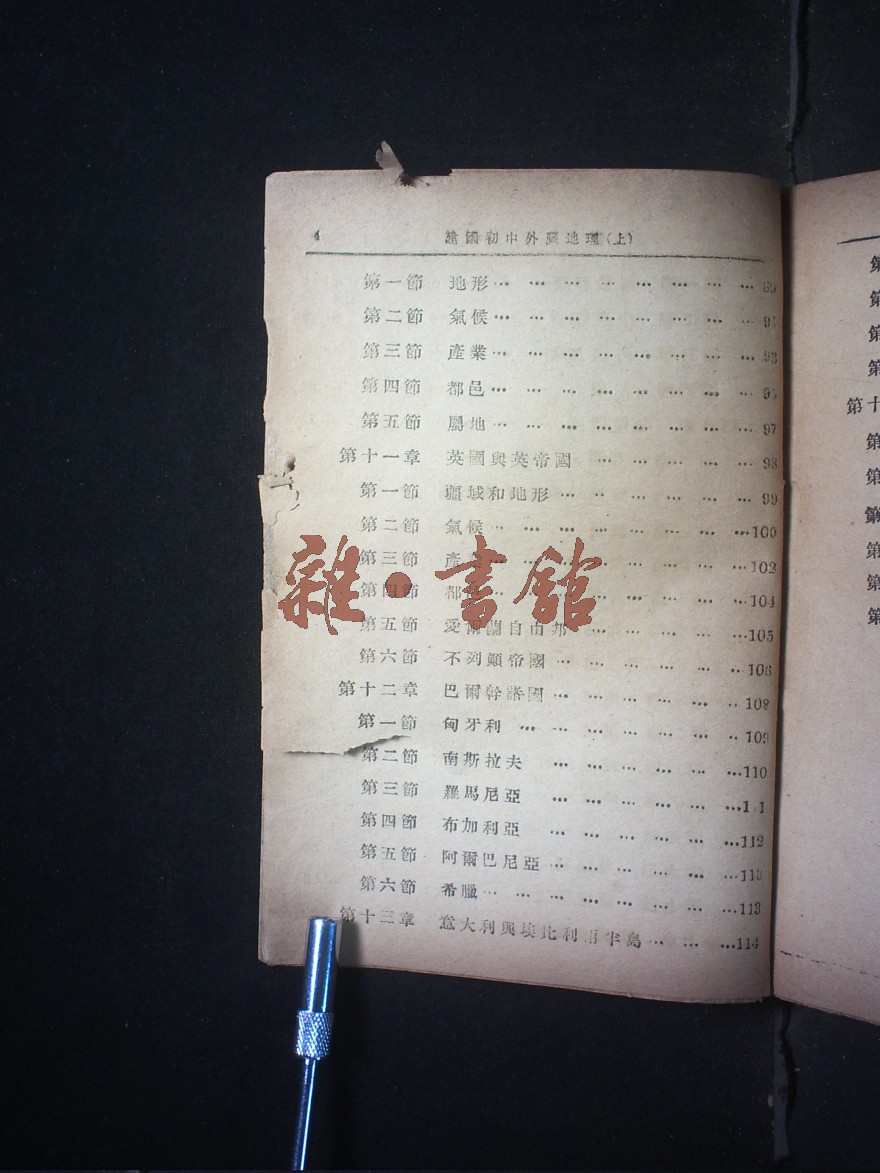 4 建國初中外國地理(上)
第一節 地形… … … … … … … … 89
第二節 氣候… … … … … … … …
第三節 產業… … … … … … … … 93
第四節 都邑… … … … … … … …
第五節 屬地… … … … … … … … 97
第十一章 英國與英帝國 … … … … … 98
第一節 疆域和地形… … … … … … 99
第二節 氣候… … … … … … … …100
第三節 產 … … … … … … … …102
第四節 都 … … … … … … … …104
第五節 愛爾蘭自由邦 … … … … …105
第六節 不列顛帝國… … … … … …106
第十二章 巴爾幹諸國… … … … … … 108
第一節 匈牙利 … … … … … … … 109
第二節 南斯拉夫 … … … … … …110
第三節 羅馬尼亞 … … … … … …1 1
第四節 布加利亞 … … … … … …112
第五節 阿爾巴尼亞… … … … … …113
第六節 希臘… … … … … … … …113
第十三章 意大利與埃比利 半島… … …114
第
第
第
第
第十
第
第
第
第
第
第
雜·書館